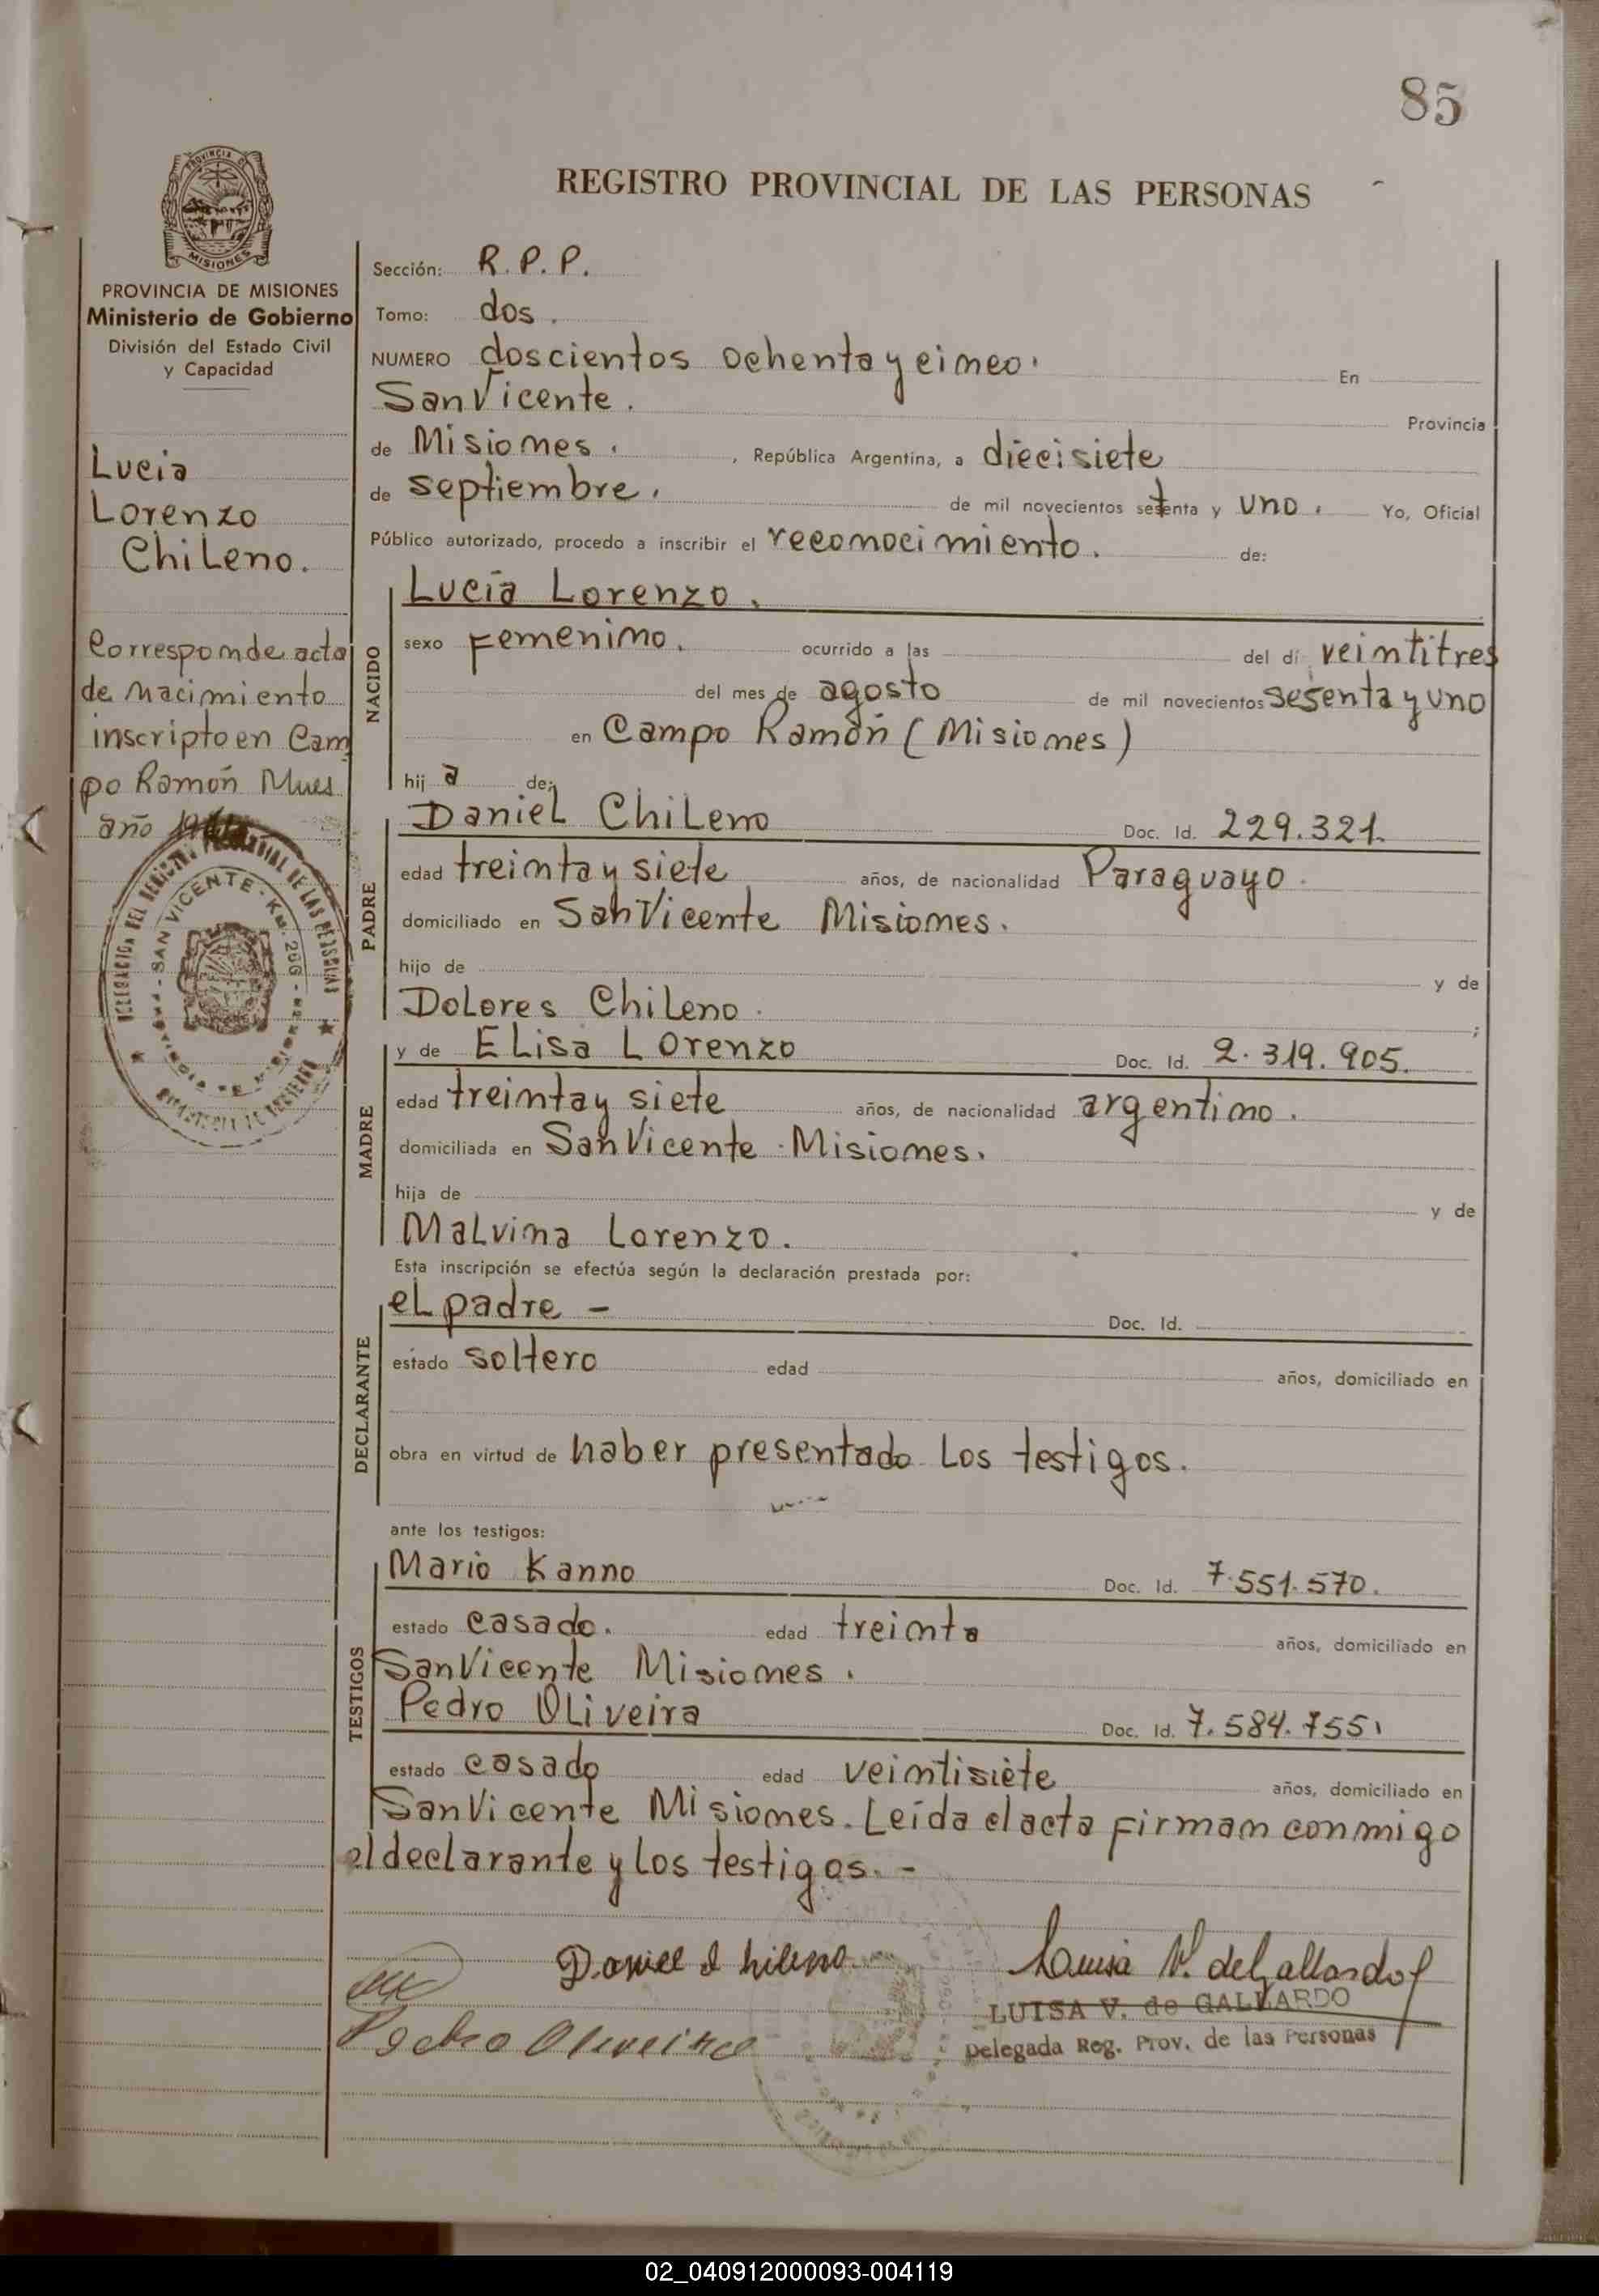 85
PROVINCIA DE
MISIONES
REGISTRO PROVINCIAL DE LAS PERSONAS
PROVINCIA DE MISIONES
Ministerio de Gobierno
División del Estado Civil
y Capacidad
Lucia
Lorenzo
Chileno.
Corresponde acta
de nacimiento
inscripto en Cam
po Ramón Mnes
año
DELEGACION DEL REGISTRO PROVINCIAL DE LAS PERSONAS
SAN VICENTE - Km. 266 -
Sección: R. P. P.
Tomo: dos.
NUMERO doscientos ochenta y cinco. En
San Vicente. Provincia
de Misiones. , República Argentina, a diecisiete
de septiembre. de mil novecientos setenta y uno. Yo, Oficial
Público autorizado, procedo a inscribir el reconocimiento. de:
NACIDO
Lucía Lorenzo.
sexo Femenino. ocurrido a las del dí veintitres
del mes de agosto de mil novecientos sesenta y uno
en Campo Ramón (Misiones)
hij a de:
PADRE
Daniel Chileno Doc. Id. 229.321.
edad treinta y siete años, de nacionalidad Paraguayo.
domiciliado en San Vicente Misiones.
hijo de y de
Dolores Chileno. ;
MADRE
y de Elisa Lorenzo Doc. Id. 2.319.905.
edad treinta y siete años, de nacionalidad argentino.
domiciliada en San Vicente - Misiones.
hija de y de
Malvina Lorenzo.
Esta inscripción se efectúa según la declaración prestada por:
DECLARANTE
el padre - Doc. Id.
estado soltero edad años, domiciliado en
obra en virtud de haber presentado los testigos.
ante los testigos:
TESTIGOS
Mario Kanno Doc. Id. 7.551.570.
estado casado. edad treinta años, domiciliado en
San Vicente Misiones.
Pedro Oliveira Doc. Id. 7.584.755.
estado casado edad veintisiete años, domiciliado en
San Vicente Misiones. Leída el acta firman conmigo
el declarante y los testigos. -
Daniel Chileno
Luisa V. de Gallardo
LUISA V. de GALLARDO
Pedro Oliveira
Delegada Reg. Prov. de las Personas
02_040912000093-004119